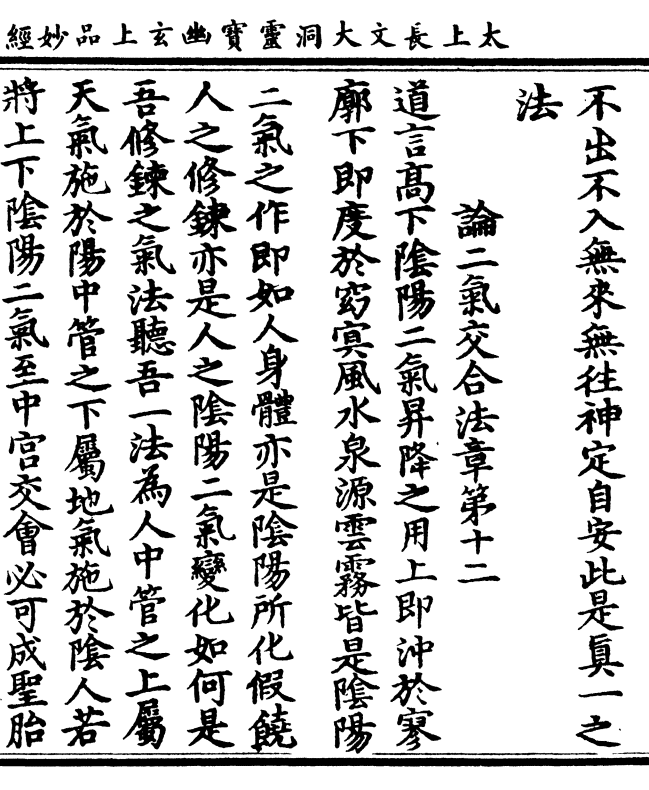 太上長文大洞靈寶幽玄上品妙經
不出不入無來無往神定自安此是眞一之
法
論二氣交合法章第十二
道言高下陰陽二氣昇降之用上即沖於寥
廓下即度於窈冥風水泉源雲霧皆是陰陽
二氣之作即如人身體亦是陰陽所化假饒
人之修鍊亦是人之陰陽二氣變化如何是
吾修鍊之氣法聽吾一法為人中管之上屬
天氣施於陽中管之下屬地氣施於陰人若
將上下陰陽二氣至中宮交會必可成聖胎